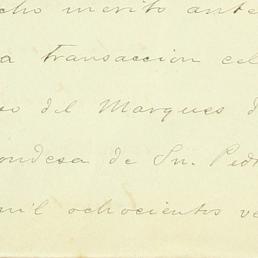 cho merito ante
a transaccion cel
so del Marques d
ondesa de Sn. Ped
mil ochocientos ve